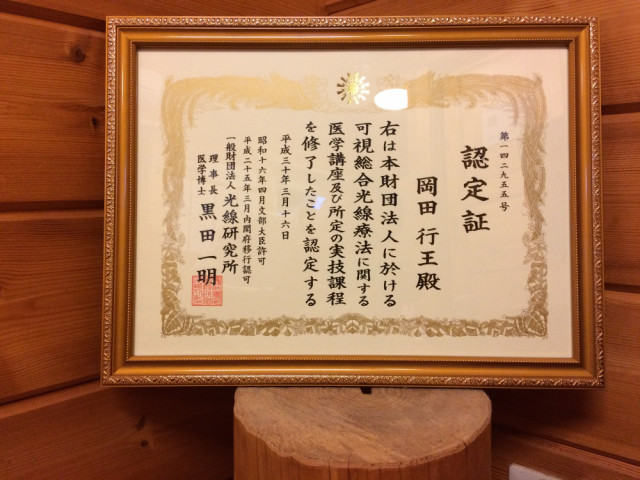 第一四二九五五号
認定証
岡田行王殿
右は本財団法人に於ける
可視総合光線療法に関する
医学講座及び所定の実技課程
を修了したことを認定する
平成三十年三月十六日
昭和十六年四月文部大臣許可
平成二十五年三月内閣府移行認可
一般財団法人 光線研究所
理事長
医学博士 黒田一明